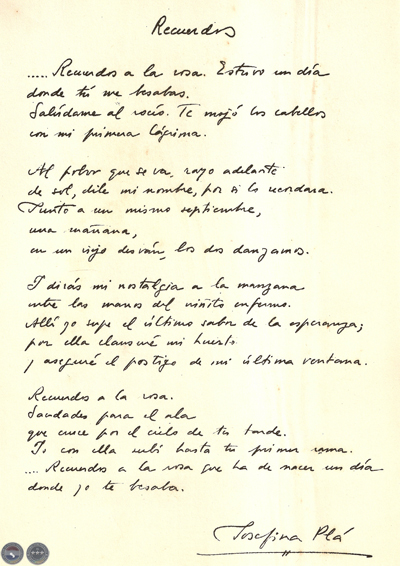 Recuerdos
..... Recuerdos a la rosa. Estuvo un día
donde tú me besabas.
Salúdame al rocío. Te mojó los cabellos
con mi primera lágrima.
Al polvo que se va, rayo adelante
de sol, dile mi nombre, por si lo recordara.
Junto a un mismo septiembre,
una mañana,
en un viejo desván, los dos danzamos.
Y dirás mi nostalgia a la manzana
entre las manos del niñito enfermo.
Allí yo supe el último sabor de la esperanza;
por ella clausuré mi huerto
y aseguré el postigo de mi última ventana.
Recuerdos a la rosa.
Saudades para el ala
que cruce por el cielo de tu tarde.
Yo con ella subí hasta tu primer rama.
.... Recuerdos a la rosa que ha de nacer un día
donde yo te besaba.
Josefina Plá